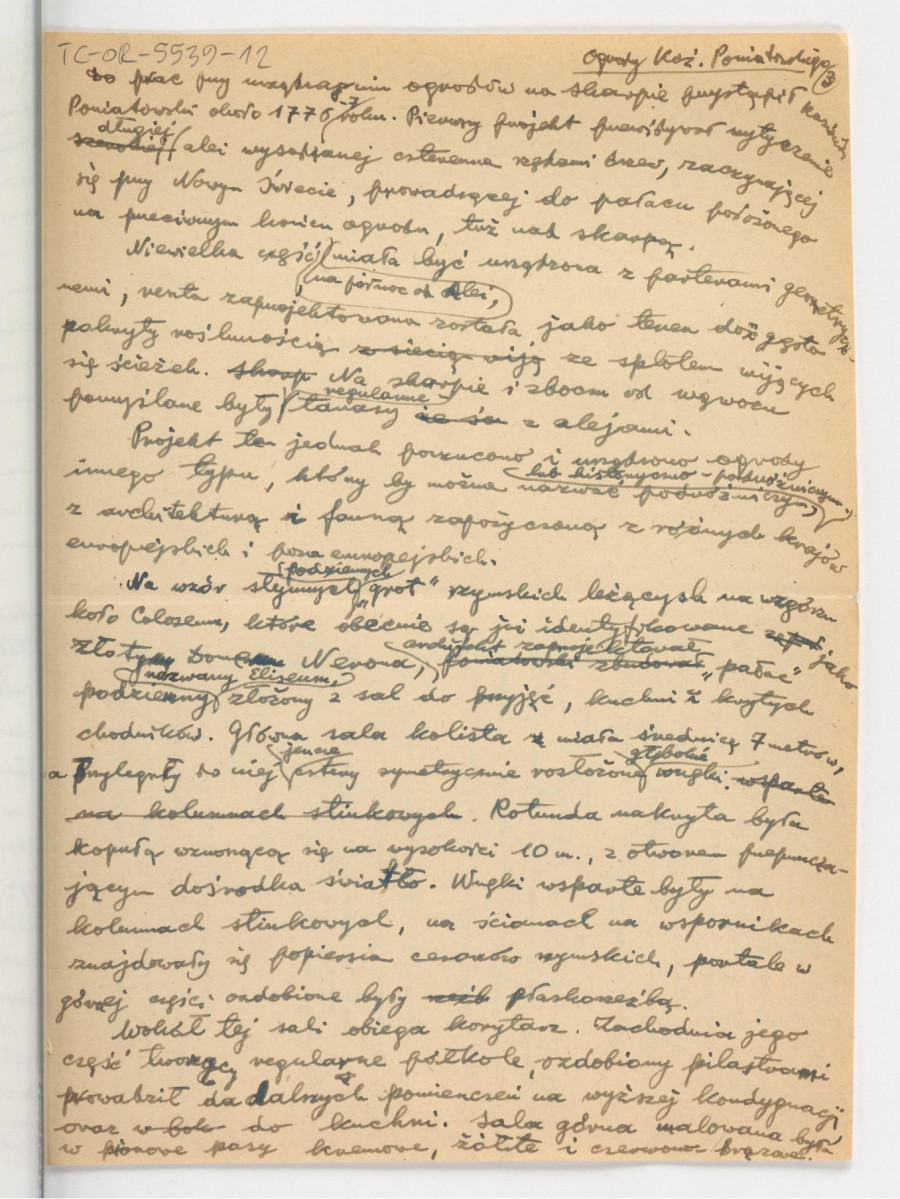 TC-OR-5539-12
Ogrody Kaź. Poniatowskiego 3
Do prac przy urządzaniu ogrodów na skarpie przystąpił Kazimierz
Poniatowski około 1776-7 roku. Pierwszy projekt przewidywał wytyczenie
długiej
szerokiej alei wysadzanej czterema rzędami drzew, zaczynającej
się przy Nowym Świecie, prowadzącej do pałacu położonego
na przeciwnym końcu ogrodu, tuż nad skarpą.
Niewielka część miała być urządzona z parterami geometrycz-
na północ od alei,
nemi, reszta zaprojektowana została jako teren dość gęsto
pokryty roślinnością z siecią wiją ze splotem wijących
się ścieżek. Skarp Na skarpie i zboczu od wąwozu
regularne
pomyślane były tarasy z alejami.
Projekt ten jednak porzucono i urządzono ogrody
lub historyczno-podróżniczym
innego typu, który by można nazwać podróżniczym,
z architekturą i fauną zapożyczoną z różnych krajów
europejskich i poza europejskich.
podziemnych
Na wzór słynnych "grot" rzymskich leżących na wzgórzu
koło Coloseum, które obecnie są już identyfikowane jako
architekt zaprojektował
złotym Domem Nerona, Poniatowski zbudował "pałac"
nazwany Eliseum,
podziemny złożony z sal do przyjęć, kuchni i krytych
chodników. Główna sala kolista miała średnicę 7 metrów,
jeszcze głębokie
a Przylegały do niej cztery symetrycznie rozłożone wnęki. wsparte
na kolumnach stiukowych. Rotunda nakryta była
kopułą wznoszącą się na wysokości 10 m., z otworem przepuszcza-
jącym do środka światło. Wnęki wsparte były na
kolumnach stiukowych, na ścianach na wspornikach
znajdowały się popiersia cesarzów rzymskich, portale w
górnej części ozdobione były rzeźb płaskorzeźbą.
Wokół tej sali obiega korytarz. Zachodnia jego
część tworzący regularne półkole, ozdobiony pilastrami
prowadził do dalszych pomieszczeń na wyższej kondygnacji,
oraz w bok do kuchni. Sala górna malowana była
w pionowe pasy kremowe, żółte i czerwono brązowe.